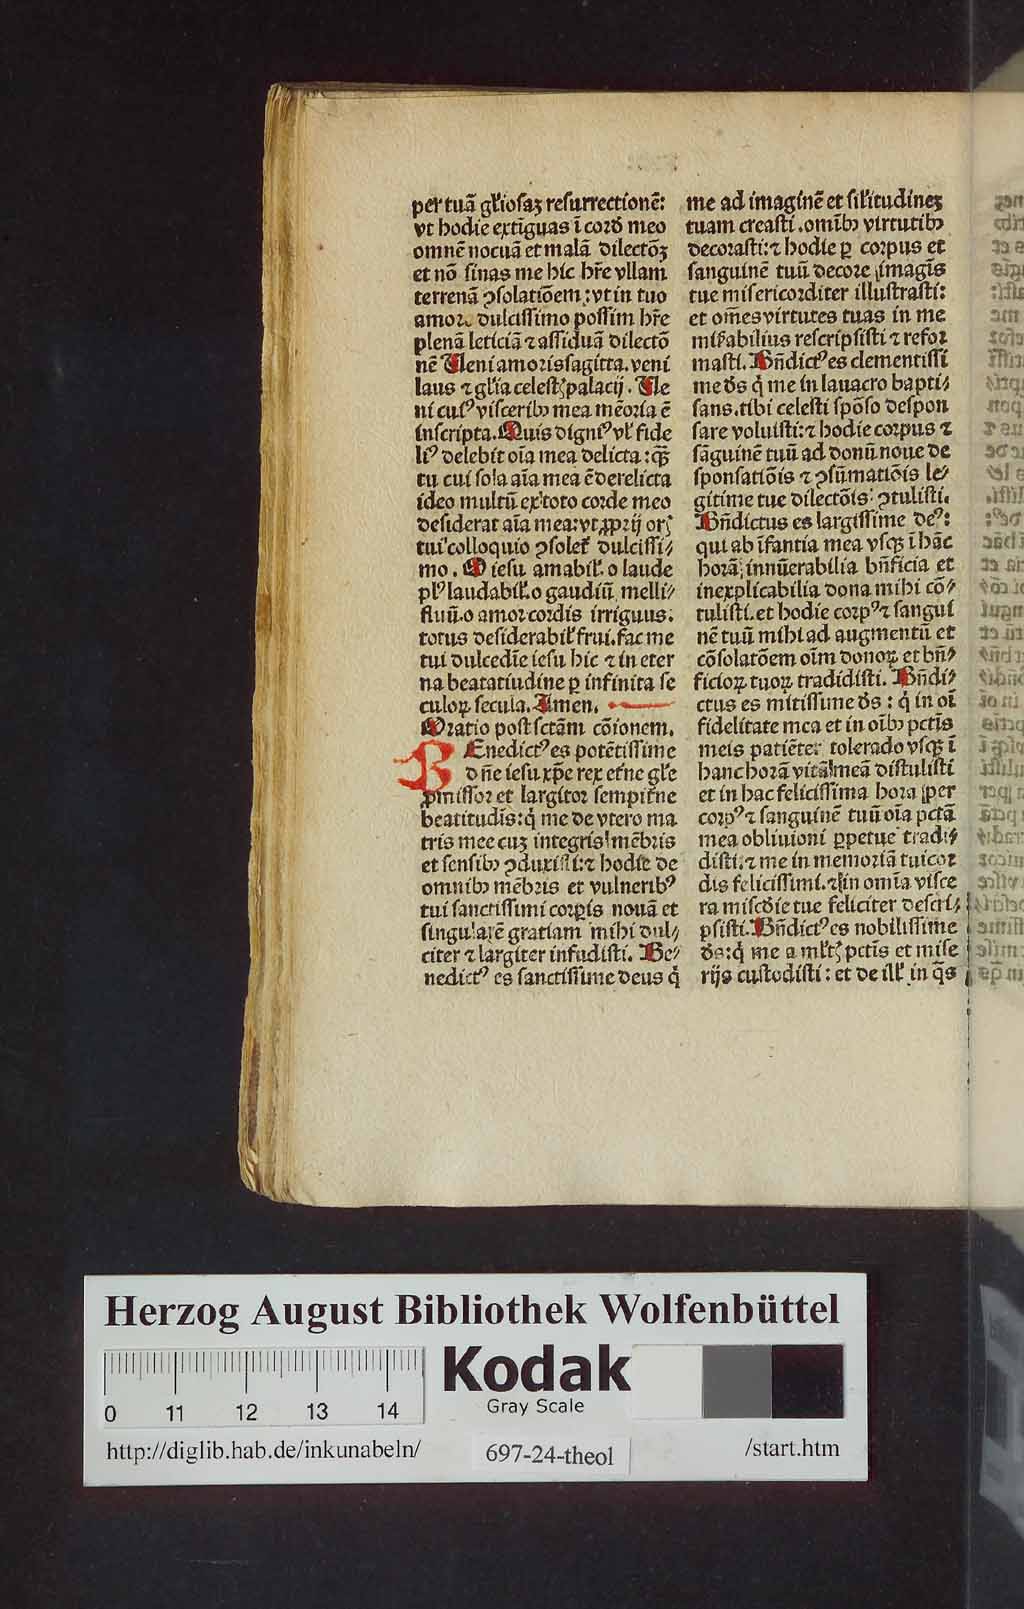 per tuā gl̄iosaz resurrectionē:
vt hodie extīguas ī cord̄ meo
omnē nocuā et malā dilectōz
et nō sinas me hic hr̄e vllam
terrenā ꝯsolatiōem: vt in tuo
amore dulcissimo possim hr̄e
plenā leticiā ⁊ assiduā dilectō
nē Ueni amoris sagitta. veni
laus ⁊ gl̄ia celestꝭ palacij. Ue
ni cuiꝰ viscerib᷒ mea mēoria ē
inscripta. Quis digniꝰ vl̄ fide
liꝰ delebit oīa mea delicta: qꝫ
tu cui sola aīa mea ē derelicta
ideo multū ex toto corde meo
desiderat aīa mea: vt ꝓprij orꝭ
tui colloquio ꝯsolet᷑ dulcissi⸗
mo. O iesu amabil̄. o laude
plꝰ laudabil̄. o gaudiū melli⸗
fluū. o amor cordis irriguus.
totus desiderabil̄ frui. fac me
tui dulcedīe iesu hic ⁊ in eter
na beatatiudine ꝑ infinita se
culoꝝ secula. Amen.
Oratio post sctām cōionem.
BEnedictꝰ es potētissime
dn̄e iesu xp̄e rex et̄ne gl̄e
ꝓmissor et largitor sempit̄ne
beatitudīs: q̇ me de vtero ma
tris mee cuz integris mēbris
et sensib᷒ ꝯduxisti: ⁊ hodie de
omnib᷒ mēbris et vulneribꝰ
tui sanctissimi corꝑis nouā et
singularē gratiam mihi dul⸗
citer ⁊ largiter infudisti. Be⸗
nedictꝰ es sanctissime deus q̇
me ad imaginē et sil̄itudinez
tuam creasti. omīb᷒ virtutib᷒
decorasti: ⁊ hodie ꝑ corpus et
sanguinē tuū decore imagīs
tue misericorditer illustrasti:
et om̄es virtutes tuas in me
mir̄abilius rescripsisti ⁊ refor
masti. Bn̄dictꝰ es clementissi
me ds̄ q̇ me in lauacro bapti⸗
sans. tibi celesti spōso despon
sare voluisti: ⁊ hodie corpus ⁊
sāguinē tuū ad donū noue de
sponsatiōis ⁊ ꝯsūmatiōis le⸗
gitime tue dilectōis ꝯtulisti.
Bn̄dictus es largissime deꝰ:
qui ab īfantia mea vsqꝫ ī hāc
horā innūerabilia bn̄ficia et
inexplicabilia dona mihi cō⸗
tulisti. et hodie corpꝰ ⁊ sangui
nē tuū mihi ad augmentū et
cōsolatōem oīm donoꝝ et bn̄⸗
ficioꝝ tuoꝝ tradidisti. Bn̄di⸗
ctus es mitissime ds̄: q̇ in oī
fidelitate mea et in oīb᷒ pctīs
meis patiēter tolerādo vsqꝫ ī
hanc horā vitā meā distulisti
et in hac felicissima hora per
corpꝰ ⁊ sanguinē tuū oīa pctā
mea obliuioni ꝑpetue tradi⸗
disti: ⁊ me in memoriā tui cor
dis felicissimi. ⁊ in omīa visce
ra misc̄die tue feliciter descri⸗
psisti. Bn̄dictꝰ es nobilissime
ds̄: q̇ me a ml̄tꝭ pctīs et mise
rijs custodisti: et de ill̄ in q̄s
Herzog August Bibliothek Wolfenbüttel
Kodak
Gray Scale
0 11 12 13 14
http://diglib.hab.de/inkunabeln/
697-24-theol
/start.htm